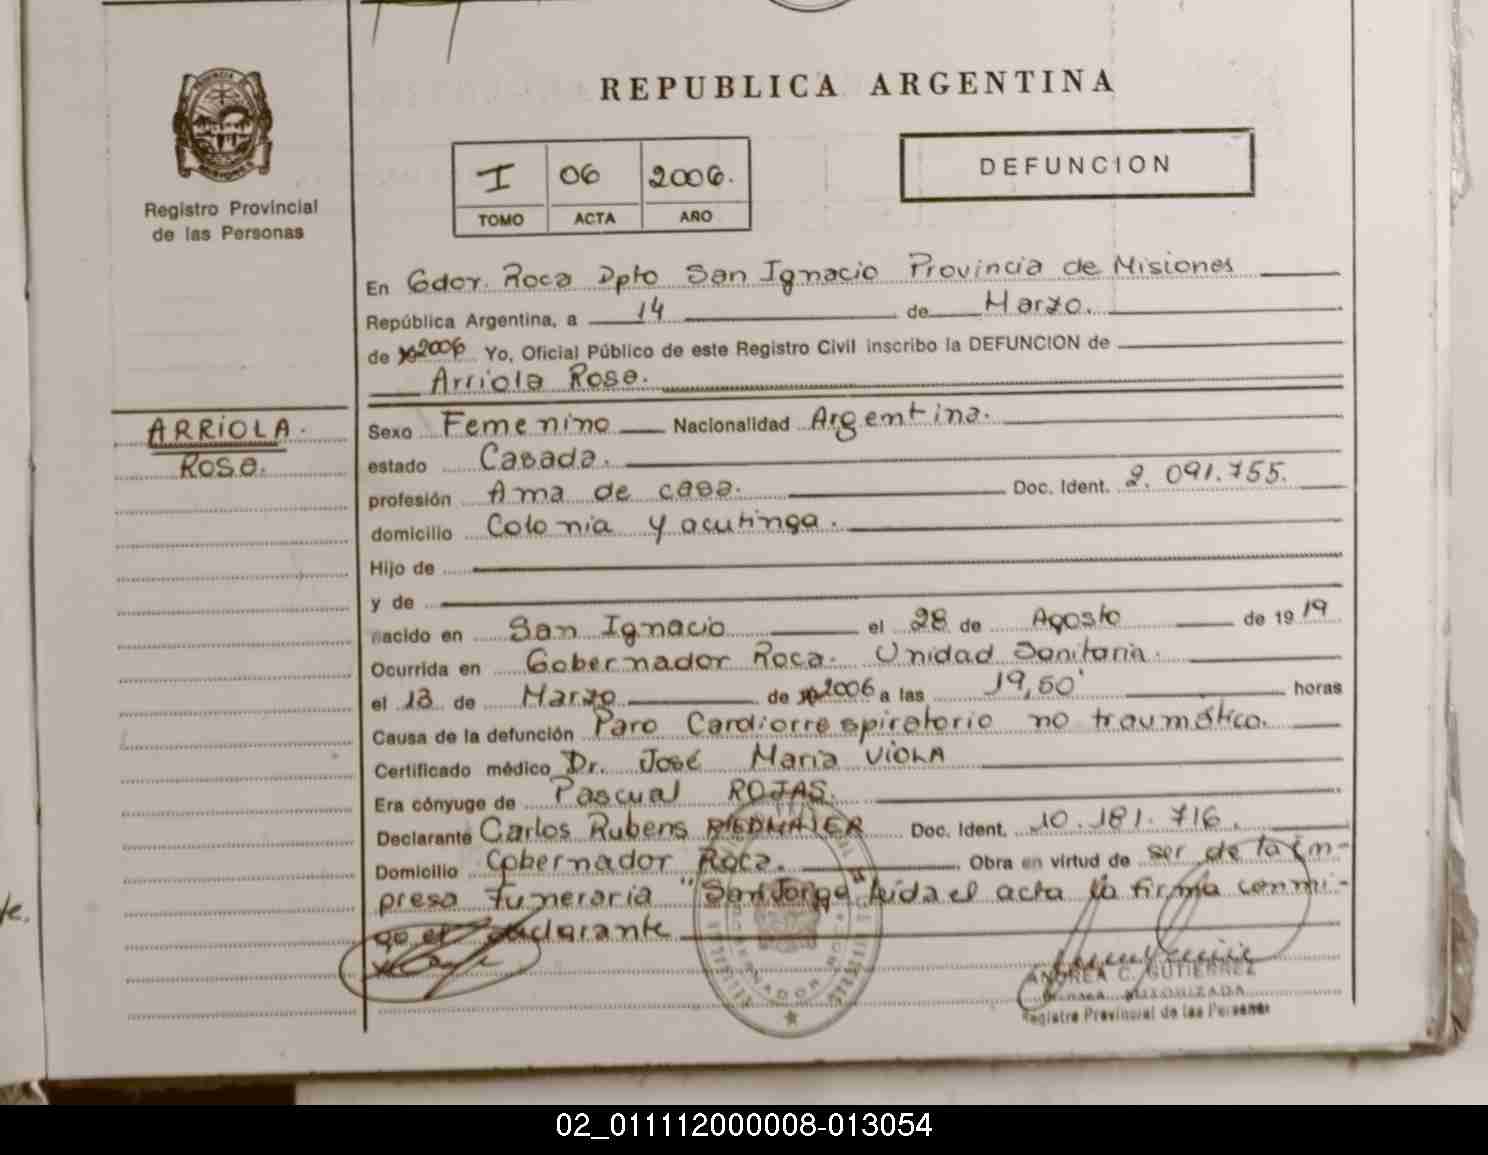 REPUBLICA ARGENTINA
Registro Provincial
de las Personas
I 06 2006.
TOMO ACTA AÑO
DEFUNCION
En Gdor. Roca Dpto San Ignacio Provincia de Misiones
República Argentina, a 14 de Marzo.
de 2006 Yo, Oficial Público de este Registro Civil inscribo la DEFUNCION de
Arriola Rosa.
ARRIOLA.
Rosa.
Sexo Femenino Nacionalidad Argentina.
estado Casada.
profesión Ama de casa. Doc. Ident. 2.091.755.
domicilio Colonia Yacutinga.
Hijo de
y de
nacido en San Ignacio el 28 de Agosto de 1919
Ocurrida en Gobernador Roca. Unidad Sanitaria.
el 13 de Marzo de 2006 a las 19,50' horas
Causa de la defunción Paro Cardiorrespiratorio no traumático.
Certificado médico Dr. José Maria VIOLA
Era cónyuge de Pascual ROJAS.
Declarante Carlos Rubens Doc. Ident. 10.181.716.
Domicilio Gobernador Roca. Obra en virtud de ser de la Em-
presa Funeraria "San Jorge" leida el acta la firma conmi-
go el declarante
ANDREA C. GUTIERREZ
AUTORIZADA
Registro Provincial de las Personas
GOBERNADOR ROCA
02_011112000008-013054